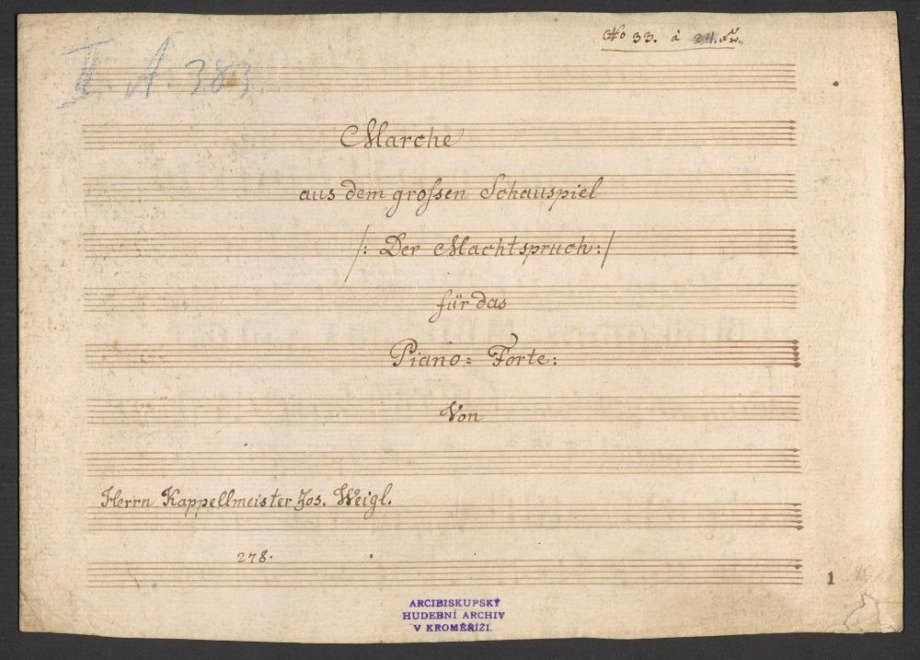 No 33. à 24. xr.
II A. 383
Marche
aus dem grossen Schauspiel
/: Der Machtspruch :/
für das
Piano = Forte :
Von
Herrn Kappellmeister Jos. Weigl.
278.
1
ARCIBISKUPSKÝ
HUDEBNÍ ARCHIV
V KROMĚŘÍŽI.